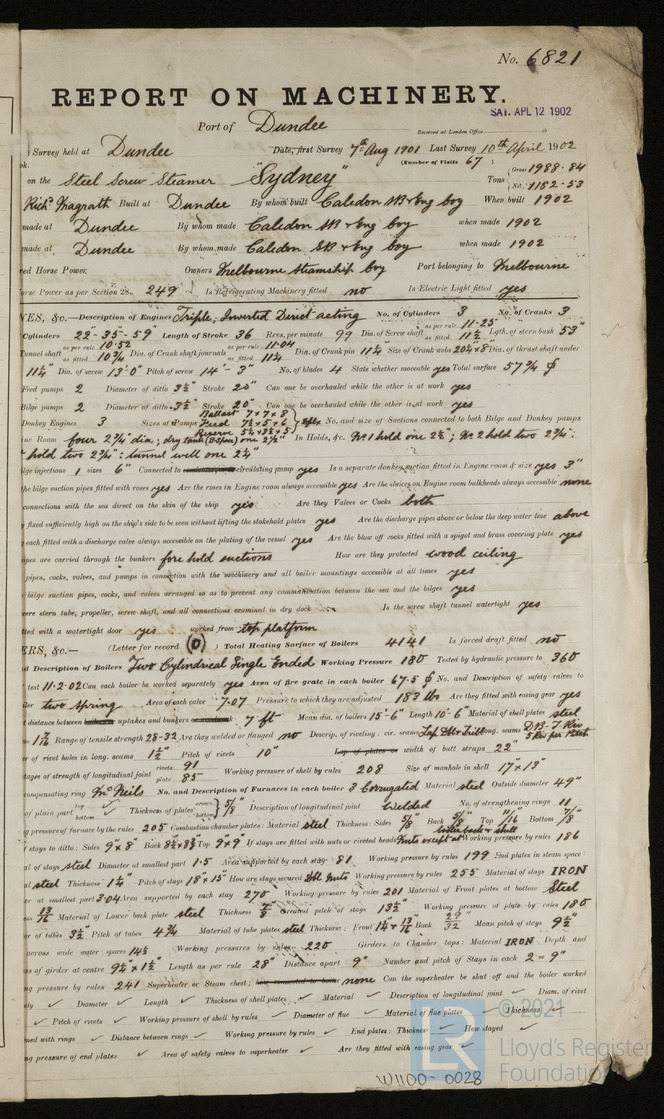 No. 6821
REPORT ON MACHINERY.
SAT. APL 12 1902
Port of Dundee
Received at London Office
Survey held at Dundee Date, first Survey 7th Aug 1901 Last Survey 10th April 1902
(Number of Visits 67)
on the Steel Screw Steamer "Sydney" Tons Gross 1988.84
Net 1182.53
Built at Dundee By whom built Caledon SB & Eng Coy When built 1902
made at Dundee By whom made Caledon SB & Eng Coy when made 1902
made at Dundee By whom made Caledon SB & Eng Coy when made 1902
Horse Power Owners Melbourne Steamship Coy Port belonging to Melbourne
Horse Power as per Section 28 249 Is Refrigerating Machinery fitted no Is Electric Light fitted yes
ES, &c.—Description of Engines Triple, Inverted Direct acting No. of Cylinders 3 No. of Cranks 3
Cylinders 22"-35-59" Length of Stroke 36 Revs. per minute 99 Dia. of Screw shaft as per rule 11.25 as fitted 11 1/2 Lgth. of stern bush 53"
Tunnel shaft as per rule 10.52 as fitted 10 3/4 Dia. of Crank shaft journals as per rule 11.04 as fitted 11 1/4 Dia. of Crank pin 11 1/4 Size of Crank webs Dia. of thrust shaft under
11 1/4" Dia. of screw 13'0" Pitch of screw 14'-3" No. of blades 4 State whether moveable yes Total surface 57 3/4
Feed pumps 2 Diameter of ditto 3 1/2" Stroke 20" Can one be overhauled while the other is at work yes
Bilge pumps 2 Diameter of ditto 3 1/2" Stroke 20" Can one be overhauled while the other is at work yes
Donkey Engines 3 Sizes of Pumps Ballast 7x7x8 Feed Reserve No. and size of Suctions connected to both Bilge and Donkey pumps
ine Room four 2 3/4" dia; dry tank one 2 1/2" In Holds, &c. No 1 hold one 2 1/2"; No 2 hold two 2 3/4":
hold two 2 3/4": tunnel well one 2 1/2"
injections 1 sizes 6" Connected to circulating pump yes Is a separate donkey suction fitted in Engine room & size yes 3"
the bilge suction pipes fitted with roses yes Are the roses in Engine room always accessible yes Are the sluices on Engine room bulkheads always accessible none
connections with the sea direct on the skin of the ship yes Are they Valves or Cocks both
fixed sufficiently high on the ship's side to be seen without lifting the stokehold plates yes Are the discharge pipes above or below the deep water line above
each fitted with a discharge valve always accessible on the plating of the vessel yes Are the blow off cocks fitted with a spigot and brass covering plate yes
pipes are carried through the bunkers fore hold suctions How are they protected wood ceiling
pipes, cocks, valves, and pumps in connection with the machinery and all boiler mountings accessible at all times yes
bilge suction pipes, cocks, and valves arranged so as to prevent any communication between the sea and the bilges yes
were stern tube, propeller, screw shaft, and all connections examined in dry dock Is the screw shaft tunnel watertight yes
fitted with a watertight door yes worked from top platform
ERS, &c.— (Letter for record (O)) Total Heating Surface of Boilers 4141 Is forced draft fitted no
Description of Boilers Two Cylindrical Single Ended Working Pressure 180 Tested by hydraulic pressure to 360
test 11.2.02 Can each boiler be worked separately yes Area of fire grate in each boiler 67.5 No. and Description of safety valves to
two Spring Area of each valve 7.07 Pressure to which they are adjusted 183 lbs Are they fitted with easing gear yes
distance between uptakes and bunkers 7 ft Mean dia. of boilers 15'-6" Length 10'-6" Material of shell plates steel
1 7/16 Range of tensile strength 28-32 Are they welded or flanged no Descrip. of riveting: cir. seams long. seams
of rivet holes in long. seams 1 1/2" Pitch of rivets 10" width of butt straps 22"
tages of strength of longitudinal joint rivets 91 plate 85 Working pressure of shell by rules 208 Size of manhole in shell 17"x13"
compensating ring McNeils No. and Description of Furnaces in each boiler 3 Corrugated Material steel Outside diameter 49"
of plain part top bottom Thickness of plates crown bottom 5/8 Description of longitudinal joint Welded No. of strengthening rings 11
pressure of furnace by the rules 205 Combustion chamber plates: Material steel Thickness: Sides 5/8" Back 5/8" Top 11/16 Bottom 7/8"
stays to ditto: Sides 9"x8" Back Top 9x9 If stays are fitted with nuts or riveted heads Nuts except at boiler back & shell Working pressure by rules 186
of stays steel Diameter at smallest part 1.5 Area supported by each stay 81 Working pressure by rules 199 End plates in steam space:
steel Thickness 1 1/4" Pitch of stays 18"x15" How are stays secured Dbl Nuts Working pressure by rules 255 Material of stays IRON
at smallest part 3.04 Area supported by each stay 270 Working pressure by rules 201 Material of Front plates at bottom Steel
13/16 Material of Lower back plate steel Thickness 7/8 Greatest pitch of stays 13 1/2" Working pressure of plate by rules 180
of tubes 3 1/2" Pitch of tubes 4 3/4 Material of tube plates steel Thickness: Front Back 29/32 Mean pitch of stays 9 1/2"
across wide water spaces 14 1/2 Working pressures by rules 220 Girders to Chamber tops: Material IRON Depth and
ss of girder at centre 9 1/4 x 1 1/2" Length as per rule 28" Distance apart 9" Number and pitch of Stays in each 2 = 9"
pressure by rules 241 Superheater or Steam chest; none Can the superheater be shut off and the boiler worked
Diameter Length Thickness of shell plates Material Description of longitudinal joint Diam. of rivet
Pitch of rivets Working pressure of shell by rules Diameter of flue Material of flue plates Thickness
with rings Distance between rings Working pressure by rules End plates: Thickness How stayed
pressure of end plates Area of safety valves to superheater Are they fitted with easing gear
© 2021
LR
Lloyd's Register
Foundation
W1100-0028